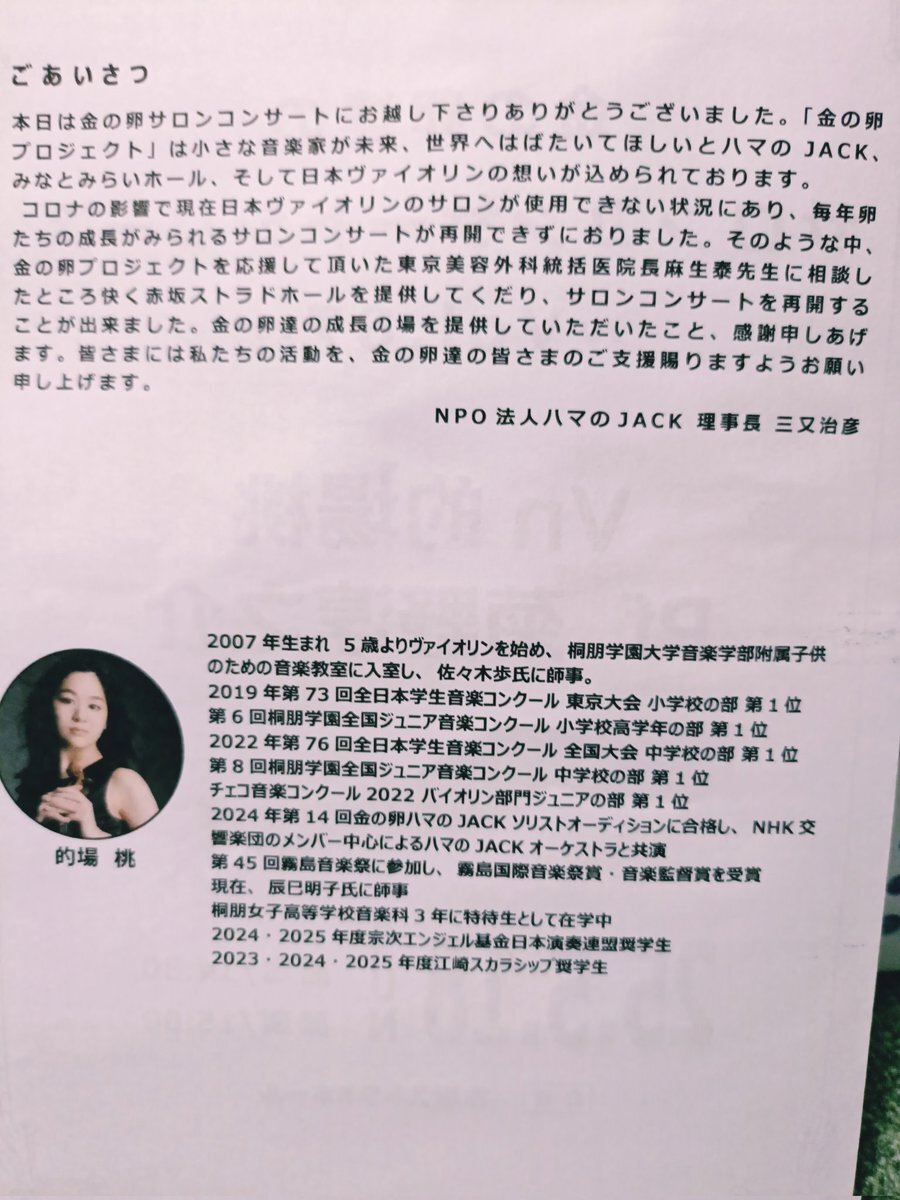 ごあいさつ
本日は金の卵サロンコンサートにお越し下さりありがとうございました。「金の卵
プロジェクト」は小さな音楽家が未来、世界へはばたいてほしいとハマの JACK、
みなとみらいホール、そして日本ヴァイオリンの想いが込められております。
コロナの影響で現在日本ヴァイオリンのサロンが使用できない状況にあり、毎年卵
たちの成長がみられるサロンコンサートが再開できずにおりました。そのような中、
金の卵プロジェクトを応援して頂いた東京美容外科統括医院長麻生泰先生に相談し
たところ快く赤坂ストラドホールを提供してくだり、サロンコンサートを再開する
ことが出来ました。金の卵達の成長の場を提供していただいたこと、感謝申しあげ
ます。皆さまには私たちの活動を、金の卵達の皆さまのご支援賜りますようお願い
申し上げます。
NPO 法人ハマの JACK 理事長 三又治彦
2007 年生まれ 5 歳よりヴァイオリンを始め、桐朋学園大学音楽学部附属子供
のための音楽教室に入室し、佐々木歩氏に師事。
2019 年第 73 回全日本学生音楽コンクール 東京大会 小学校の部 第 1 位
第 6 回桐朋学園全国ジュニア音楽コンクール 小学校高学年の部 第 1 位
2022 年第 76 回全日本学生音楽コンクール 全国大会 中学校の部 第 1 位
第 8 回桐朋学園全国ジュニア音楽コンクール 中学校の部 第 1 位
チェコ音楽コンクール 2022 バイオリン部門ジュニアの部 第 1 位
2024 年第 14 回金の卵ハマの JACK ソリストオーディションに合格し、NHK 交
響楽団のメンバー中心によるハマの JACK オーケストラと共演
第 45 回霧島音楽祭に参加し、霧島国際音楽祭賞・音楽監督賞を受賞
現在、辰巳明子氏に師事
桐朋女子高等学校音楽科 3 年に特待生として在学中
2024・2025 年度宗次エンジェル基金日本演奏連盟奨学生
2023・2024・2025 年度江崎スカラシップ奨学生
的場 桃